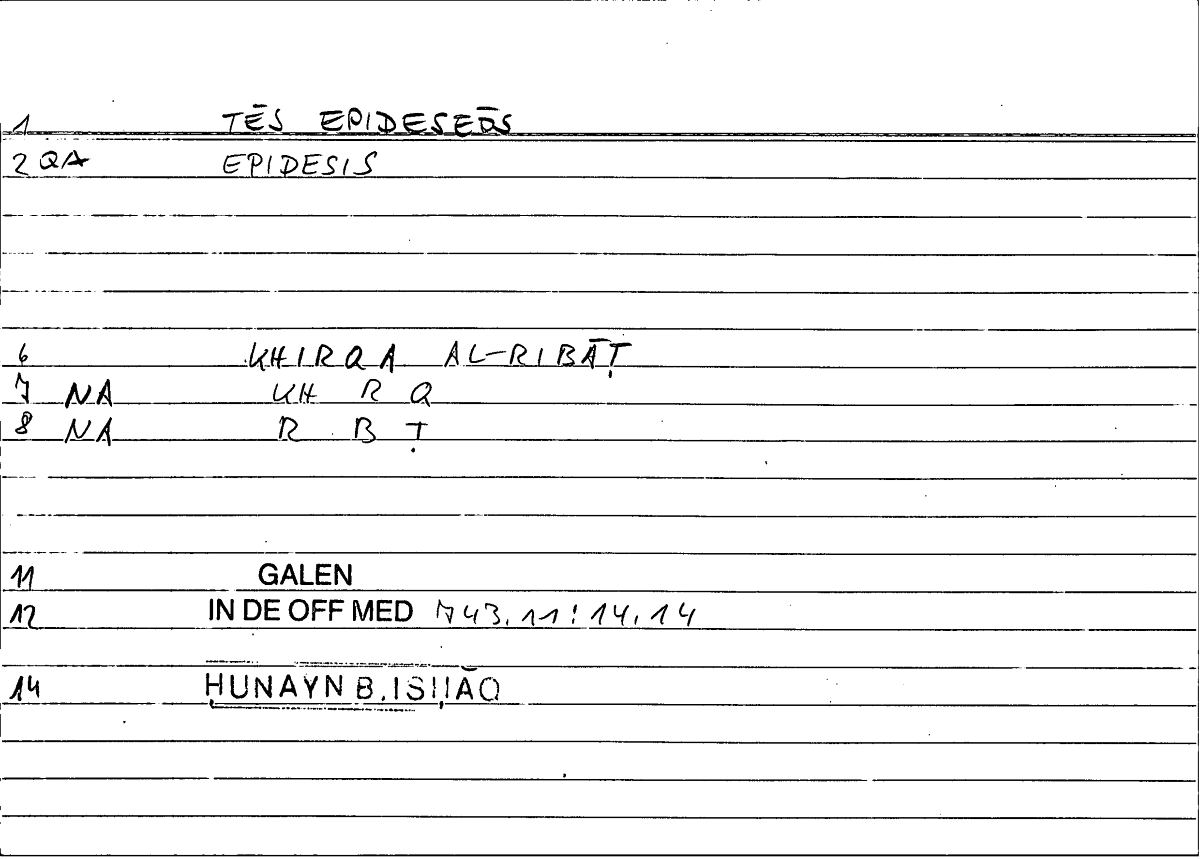 1 TĒS EPIDESEŌS
2 QA EPIDESIS
6 KHIRQA AL-RIBĀṬ
7 NA KH R Q
8 NA R B Ṭ
11 GALEN
12 IN DE OFF MED 743,11:14,14
14 ḤUNAYN B.ISḤĀQ